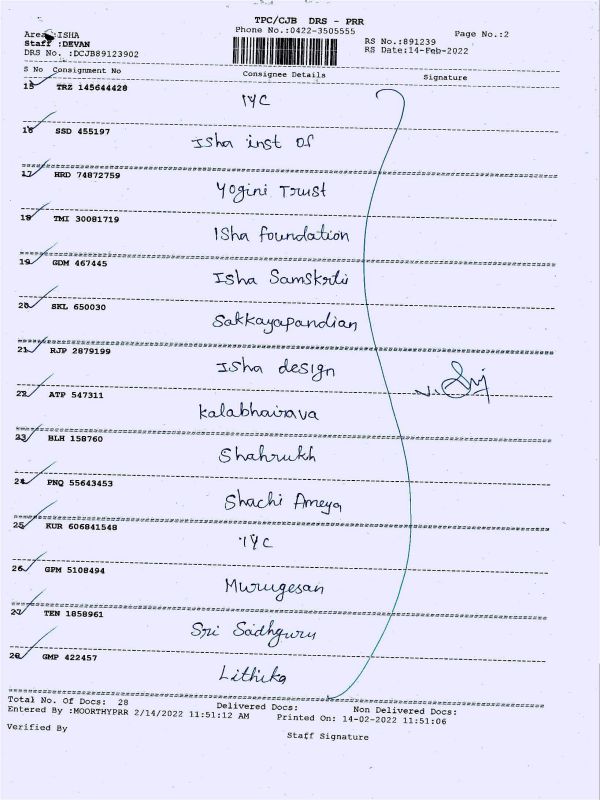 TPC/CJB DRS - PRR
Phone No.:0422-3505555
Page No.:2
Area :ISHA
Staff :DEVAN
DRS No. :DCJB89123902
RS No.:891239
RS Date:14-Feb-2022
S No Consignment No Consignee Details Signature
15 TRZ 145644428
IYC
16 SSD 455197
Isha inst of
17 HRD 74872759
Yogini Trust
18 TMI 30081719
Isha foundation
19 GDM 467445
Isha Samskriti
20 SKL 650030
Sakkayapandian
21 RJP 2879199
Isha design
22 ATP 547311
Kalabhairava
23 BLH 158760
Shahrukh
24 PNQ 55643453
Shachi Ameya
25 KUR 606841548
IYC
26 GPM 5108494
Murugesan
27 TEN 1858961
Sri Sadhguru
28 GMP 422457
Lithika
Total No. Of Docs: 28 Delivered Docs: Non Delivered Docs:
Entered By :MOORTHYPRR 2/14/2022 11:51:12 AM Printed On: 14-02-2022 11:51:06
Verified By
Staff Signature